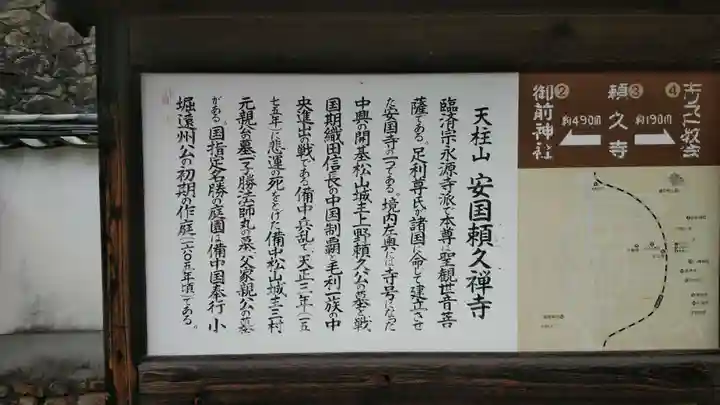 天柱山 安国頼久禅寺
臨済宗永源寺派で本尊は聖観世音菩
薩である。足利尊氏が諸国に命じて建立させ
た安国寺の一つである。境内左奥には寺号になった
中興の開基松山城主上野頼久公の墓と、戦
国期織田信長の中国制覇と毛利一族の中
央進出の戦である備中兵乱で、天正三年(一五
七五年)に悲運の死をとげた備中松山城主三村
元親公の墓、一子勝法師丸の墓、父家親公の墓
がある。国指定名勝の庭園は備中国奉行 小
堀遠州公の初期の作庭(一六〇五年頃)である。
④ キリスト教会
約190m
③ 頼久寺
約490m
② 御前神社